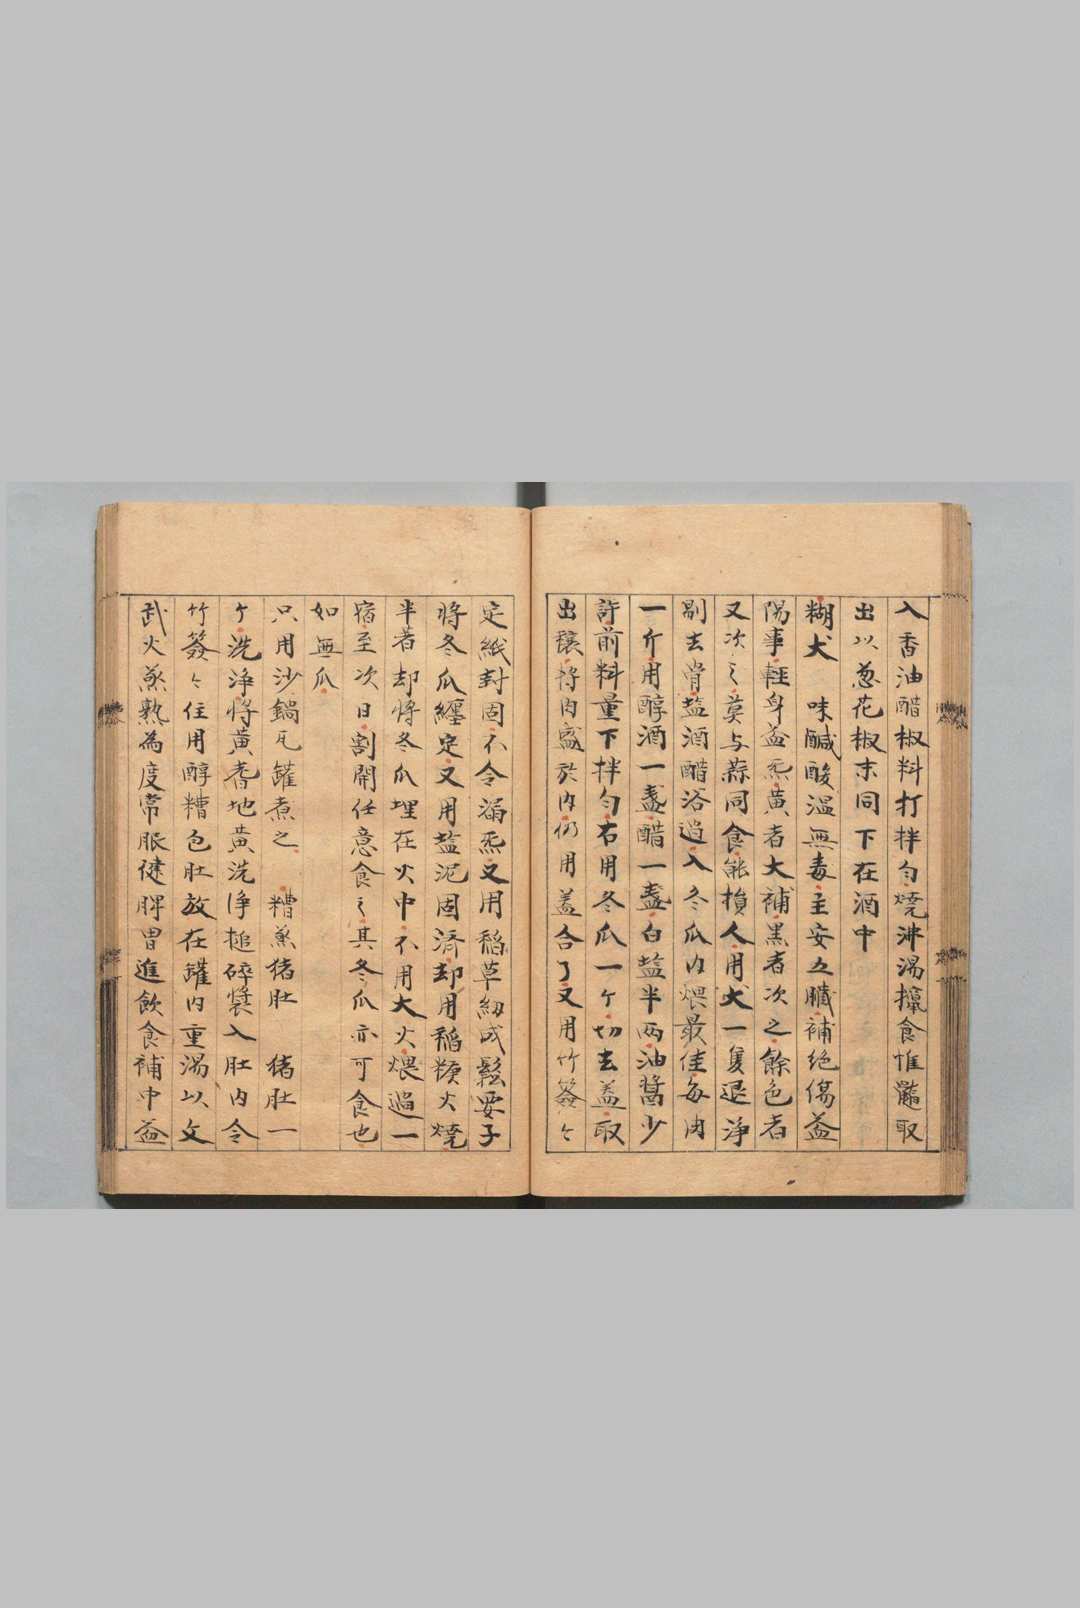 入香油醋椒料打拌匀燒沸湯攛食惟髓取
出以葱花椒末同下在酒中
糊犬　味鹹酸温無毒主安五臟補絶傷益
陽事輕身益炁黄者大補黒者次之餘色者
又次之莫与蒜同食能損人用犬一隻退浄
剔去骨塩酒醋浴過入冬瓜内煨最佳每肉
一斤用醇酒一盞醋一盞白塩半两油醬少
許前料量下拌匀右用冬瓜一ケ切去盖取
出穰将肉盛於内仍用盖合了又用竹簽々
定紙封固不令漏炁又用稻草細成鬆要子
将冬瓜纏定又用塩泥固済却用稻糠火燒
半著却将冬瓜埋在火中不用大火煨過一
宿至次日割開任意食之其冬瓜亦可食也
如無瓜
只用沙鍋瓦罐煮之　糟蒸猪肚　猪肚一
ケ洗浄将黄耆地黄洗浄槌碎裝入肚内令
竹簽々住用醇糟包肚放在罐内重湯以文
武火蒸熟為度常服健脾胃進飲食補中益